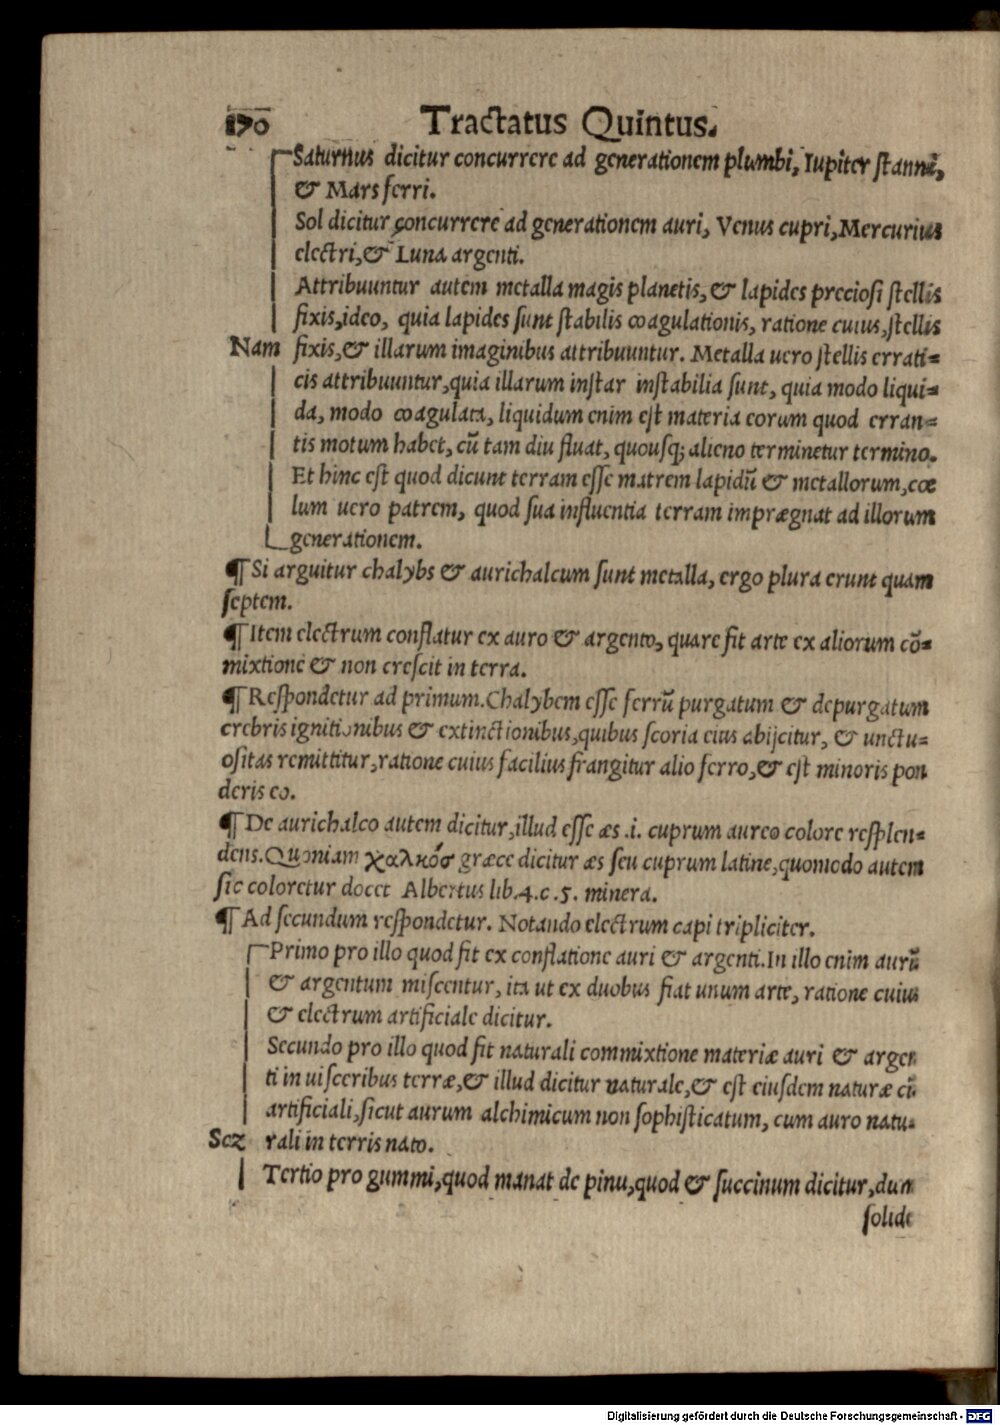 170 Tractatus Quintus.
Saturnus dicitur concurrere ad generationem plumbi, Iupiter ſtanni,
& Mars ferri.
Sol dicitur concurrere ad generationem auri, Venus cupri, Mercurius
electri, & Luna argenti.
Attribuuntur autem metalla magis planetis, & lapides precioſi ſtellis
fixis, ideo, quia lapides ſunt ſtabilis coagulationis, ratione cuius, ſtellis
Nam fixis, & illarum imaginibus attribuuntur. Metalla uero ſtellis errati=
cis attribuuntur, quia illarum inſtar inſtabilia ſunt, quia modo liqui=
da, modo coagulata, liquidum enim eſt materia eorum quod erran=
tis motum habet, cũ tam diu fluat, quouſq; alieno terminetur termino.
Et hinc eſt quod dicunt terram eſſe matrem lapidũ & metallorum, cœ
lum uero patrem, quod ſua influentia terram imprægnat ad illorum
generationem.
¶ Si arguitur chalybs & aurichalcum ſunt metalla, ergo plura erunt quam
ſeptem.
¶ Item electrum conflatur ex auro & argento, quare fit arte ex aliorum cõ=
mixtione & non creſcit in terra.
¶ Reſpondetur ad primum. Chalybem eſſe ferrũ purgatum & depurgatum
crebris ignitionibus & extinctionibus, quibus ſcoria eius abijcitur, & unctu=
oſitas remittitur, ratione cuius facilius frangitur alio ferro, & eſt minoris pon
deris eo.
¶ De aurichalco autem dicitur, illud eſſe æs .i. cuprum aureo colore reſplen=
dens. Quoniam χαλκόσ græce dicitur æs ſeu cuprum latine, quomodo autem
ſic coloretur docet Albertus lib. 4. c. 5. minera.
¶ Ad ſecundum reſpondetur. Notando electrum capi tripliciter.
Primo pro illo quod fit ex conflatione auri & argenti. In illo enim aurũ
& argentum miſcentur, ita ut ex duobus fiat unum arte, ratione cuius
& electrum artificiale dicitur.
Secundo pro illo quod fit naturali commixtione materiæ auri & argen
ti in uiſceribus terræ, & illud dicitur naturale, & eſt eiuſdem naturæ cũ
artificiali, ſicut aurum alchimicum non ſophiſticatum, cum auro natu=
Scz rali in terris nato.
Tertio pro gummi, quod manat de pinu, quod & ſuccinum dicitur, dum
ſolide
Digitalisierung gefördert durch die Deutsche Forschungsgemeinschaft - DFG